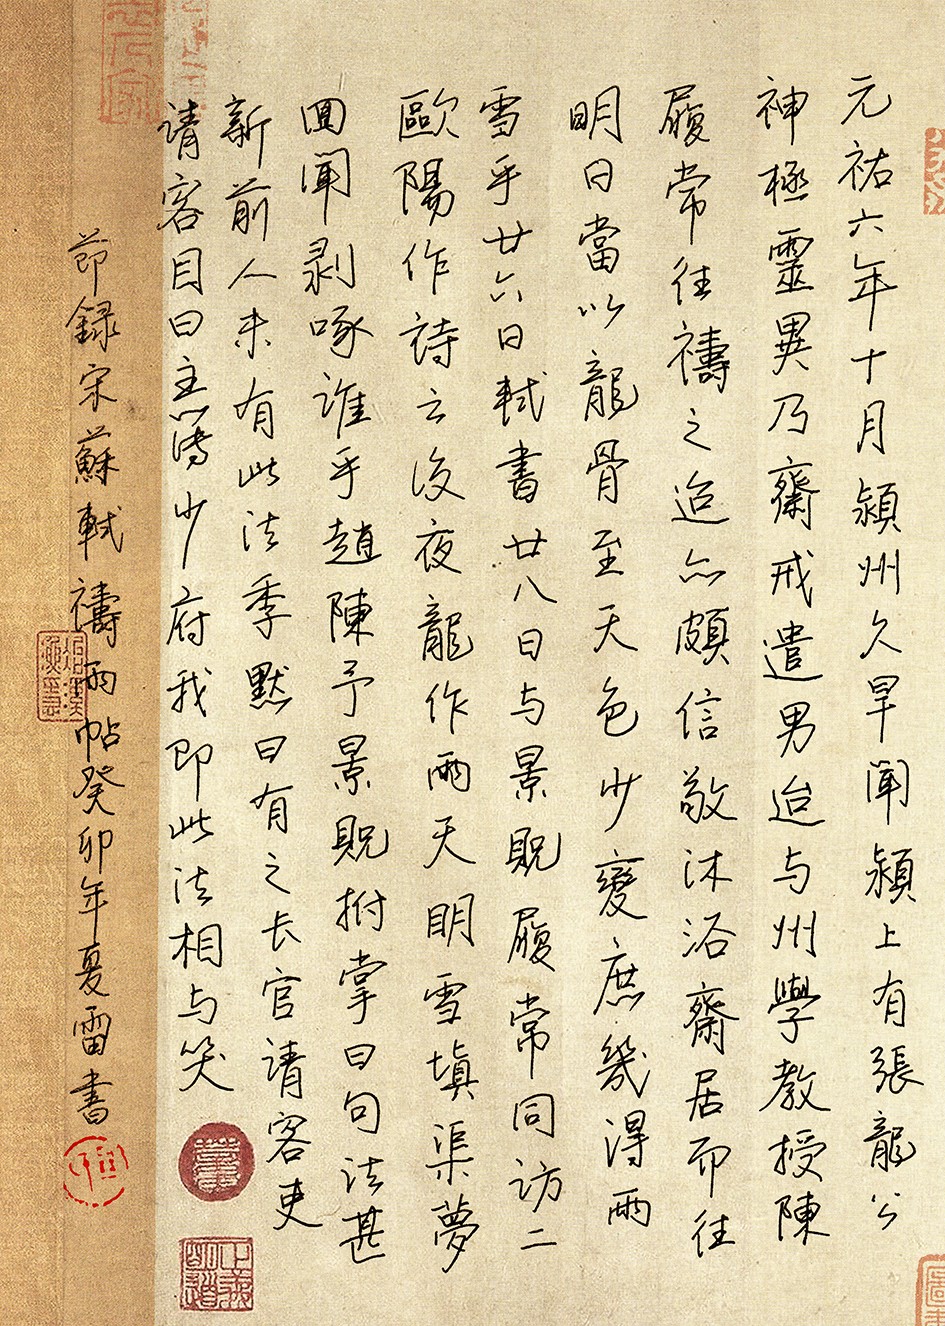 元祐六年十月潁州久旱聞潁上有張龍公
神極靈異乃齋戒遣男迨与州學教授陳
履常往禱之迨亦頗信敬沐浴齋居而往
明日當以龍骨至天色少變庶幾得雨
雪乎廿六日軾書廿八日与景貺履常同访二
歐陽作詩云後夜龍作雨天明雪填渠夢
回聞剥啄誰乎趙陳予景貺拊掌曰句法甚
新前人未有此法季默曰有之长官请客吏
请客目曰主簿少府我即此法相与笑
節録宋蘇軾禱雨帖癸卯年夏雷書